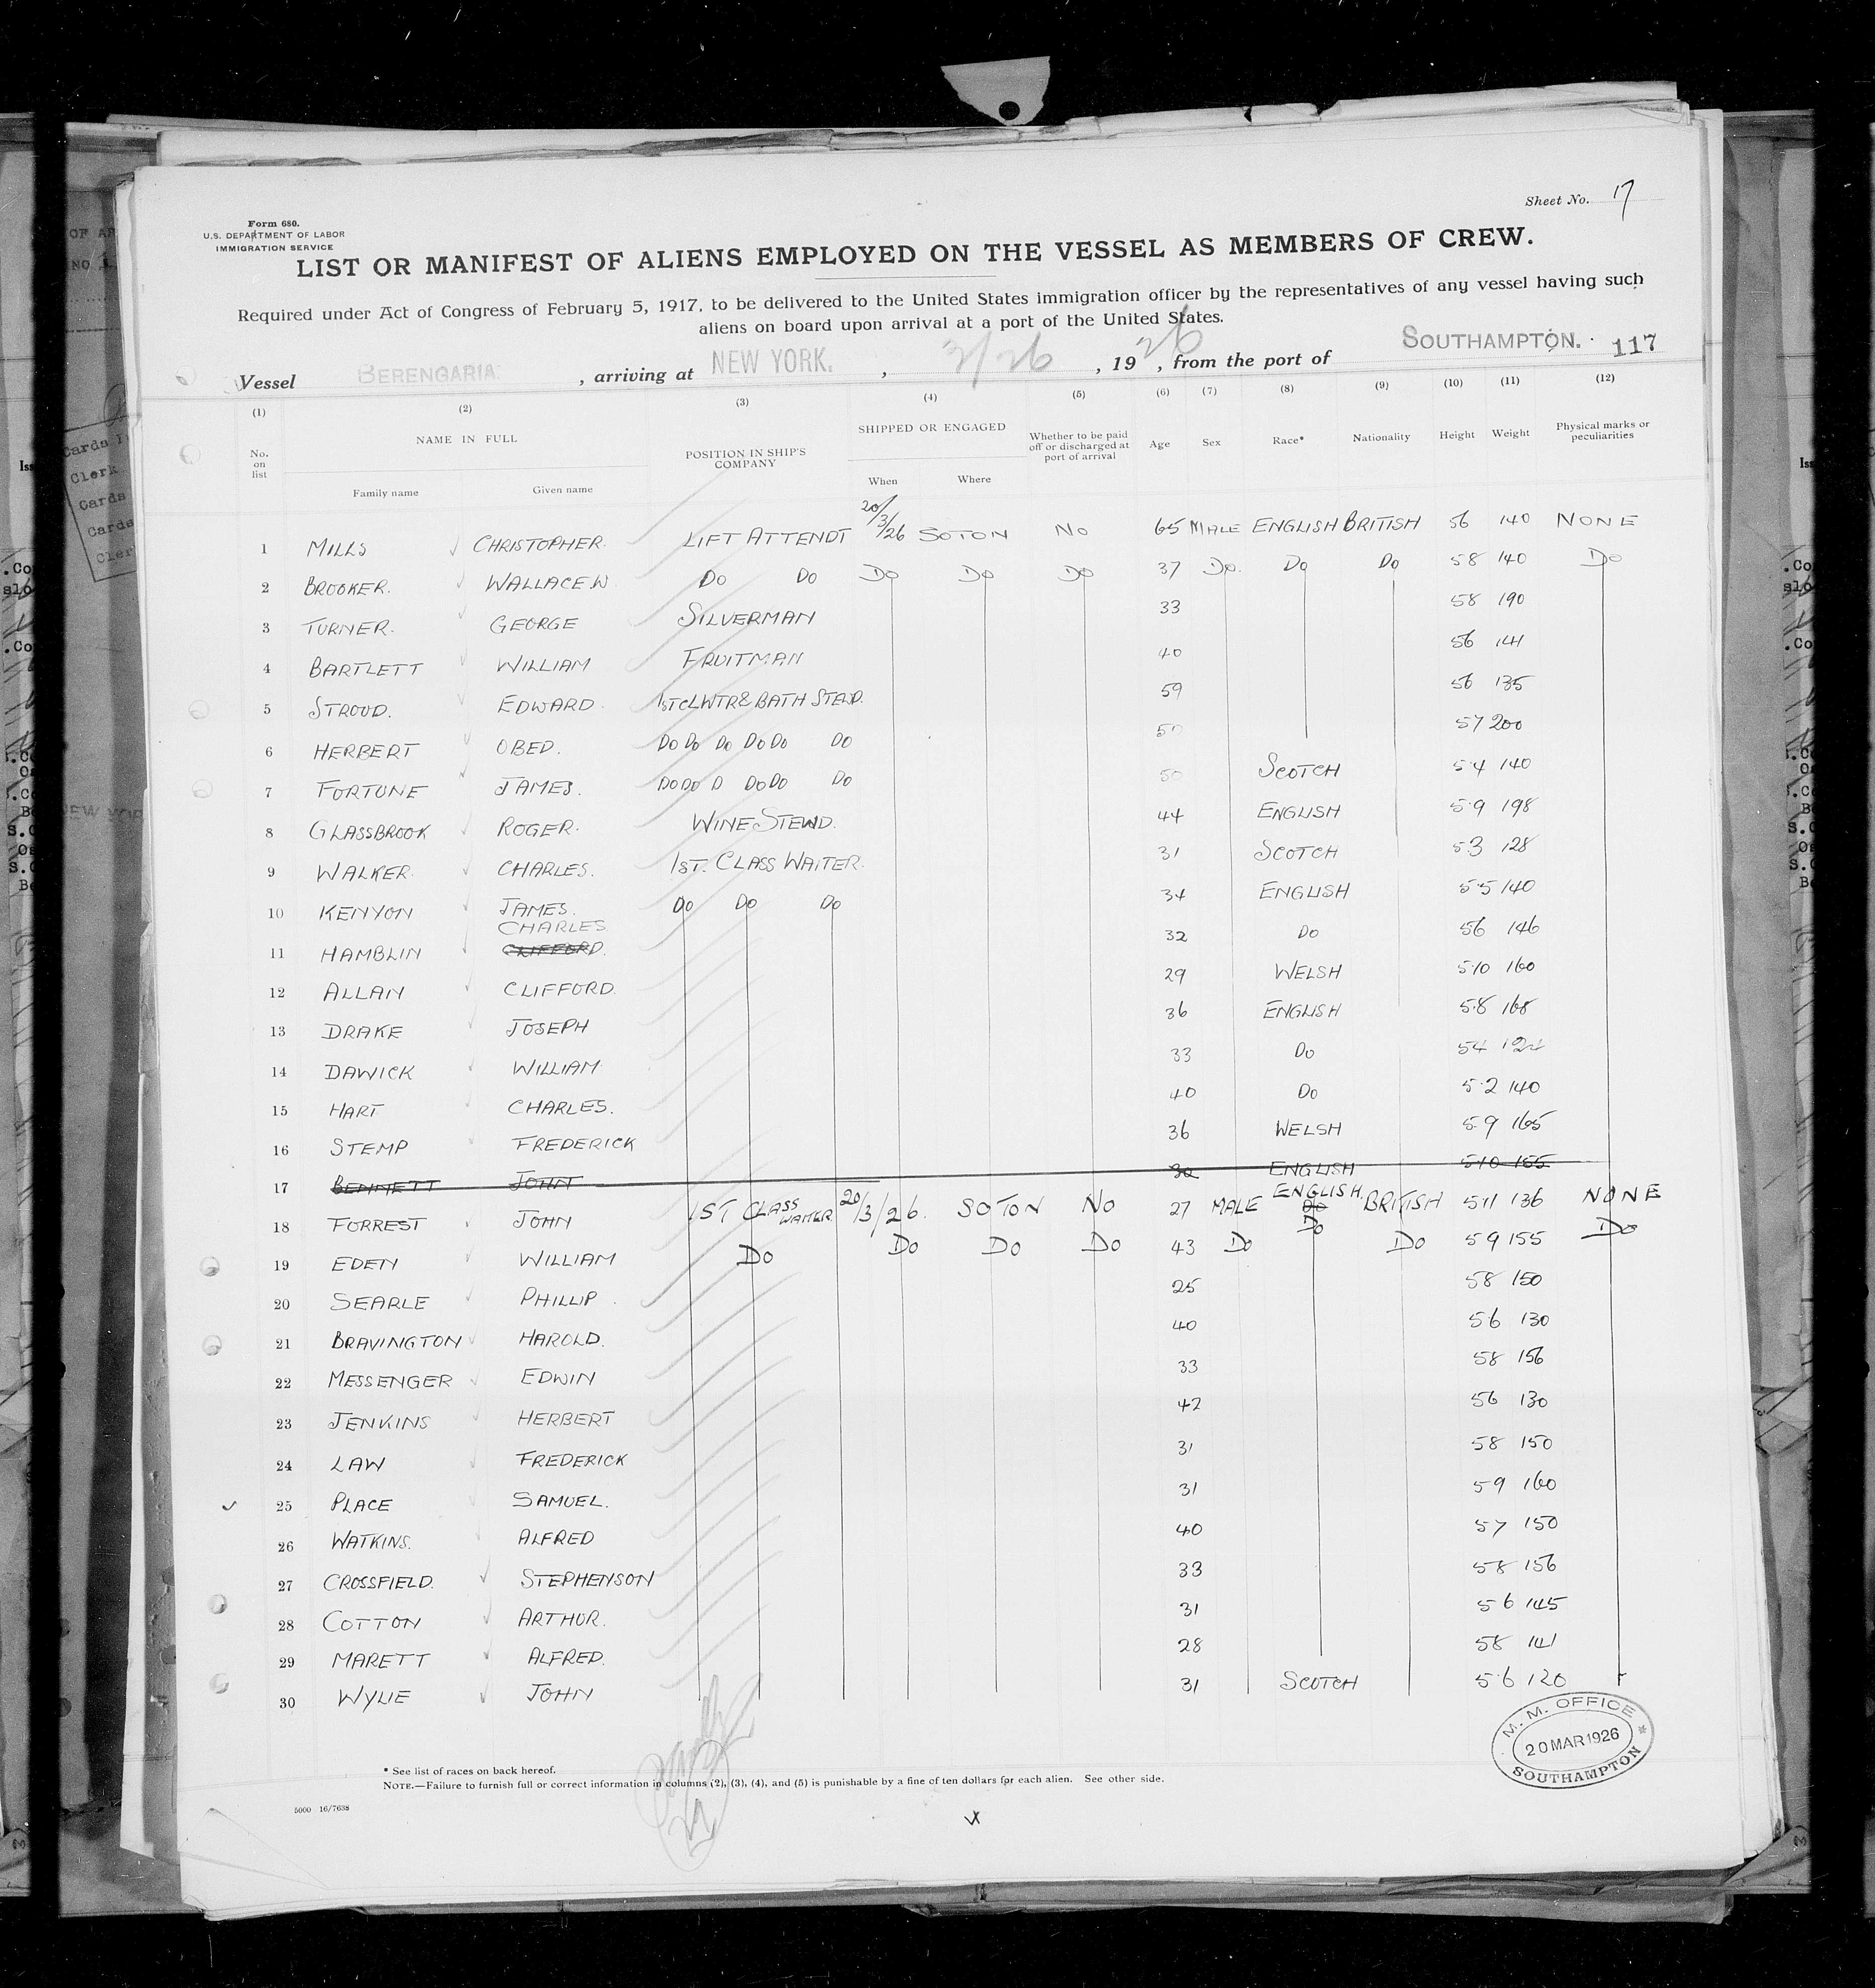 Sheet No. 17
Form 680.
U.S. DEPARTMENT OF LABOR
IMMIGRATION SERVICE
LIST OR MANIFEST OF ALIENS EMPLOYED ON THE VESSEL AS MEMBERS OF CREW.
Required under Act of Congress of February 5, 1917, to be delivered to the United States immigration officer by the representatives of any vessel having such
aliens on board upon arrival at a port of the United States.
Vessel BERENGARIA, arriving at NEW YORK. , 3/26 , 1926, from the port of SOUTHAMPTON. 117
(1) (2) (3) (4) (5) (6) (7) (8) (9) (10) (11) (12)
No. on list NAME IN FULL Family name Given name POSITION IN SHIP'S COMPANY SHIPPED OR ENGAGED When Where Whether to be paid off or discharged at port of arrival Age Sex Race* Nationality Height Weight Physical marks or peculiarities
1 MILLS CHRISTOPHER. LIFT ATTENDT 20/3/26 SOTON NO 65 MALE ENGLISH BRITISH 56 140 NONE
2 BROOKER. WALLACE.W DO DO DO DO DO 37 DO. DO DO 58 140 DO
3 TURNER. GEORGE SILVERMAN 33 58 190
4 BARTLETT WILLIAM FRUITMAN 40 56 141
5 STROUD. EDWARD. 1ST CL WTR & BATH STEWD. 59 56 135
6 HERBERT OBED. DO DO DO DO DO DO 50 57 200
7 FORTUNE JAMES. DO DO D DO DO DO 50 SCOTCH 5.4 140
8 GLASSBROOK ROGER. WINE STEWD. 44 ENGLISH 5.9 198
9 WALKER. CHARLES. 1ST. CLASS WAITER. 31 SCOTCH 5.3 128
10 KENYON JAMES. DO DO DO 34 ENGLISH 5.5 140
CHARLES
11 HAMBLIN CLIFFORD. 32 DO 56 146
12 ALLAN CLIFFORD. 29 WELSH 5.10 160
13 DRAKE JOSEPH 36 ENGLISH 5.8 168
14 DAWICK WILLIAM 33 DO 54
15 HART CHARLES. 40 DO 5.2 140
16 STEMP FREDERICK 36 WELSH 5.9 165
17 BENNETT JOHN 30 ENGLISH 5.10 155
18 FORREST JOHN 1ST CLASS WAITER 20/3/26. SOTON NO 27 MALE ENGLISH. DO BRITISH 5.11 136 NONE
19 EDEN WILLIAM DO DO DO DO 43 DO DO DO 59 155 DO
20 SEARLE PHILLIP. 25 58 150
21 BRAVINGTON HAROLD. 40 5.6 130
22 MESSENGER EDWIN 33 58 156
23 JENKINS HERBERT 42 56 130
24 LAW FREDERICK 31 58 150
25 PLACE SAMUEL. 31 59 160
26 WATKINS. ALFRED 40 57 150
27 CROSSFIELD. STEPHENSON 33 58 156
28 COTTON ARTHUR. 31 56 145
29 MARETT ALFRED. 28 58 141
30 WYLIE JOHN 31 SCOTCH 5.6 120
M. M. OFFICE
20 MAR 1926
SOUTHAMPTON
* See list of races on back hereof.
NOTE.—Failure to furnish full or correct information in columns (2), (3), (4), and (5) is punishable by a fine of ten dollars for each alien. See other side.
5000 16/7638